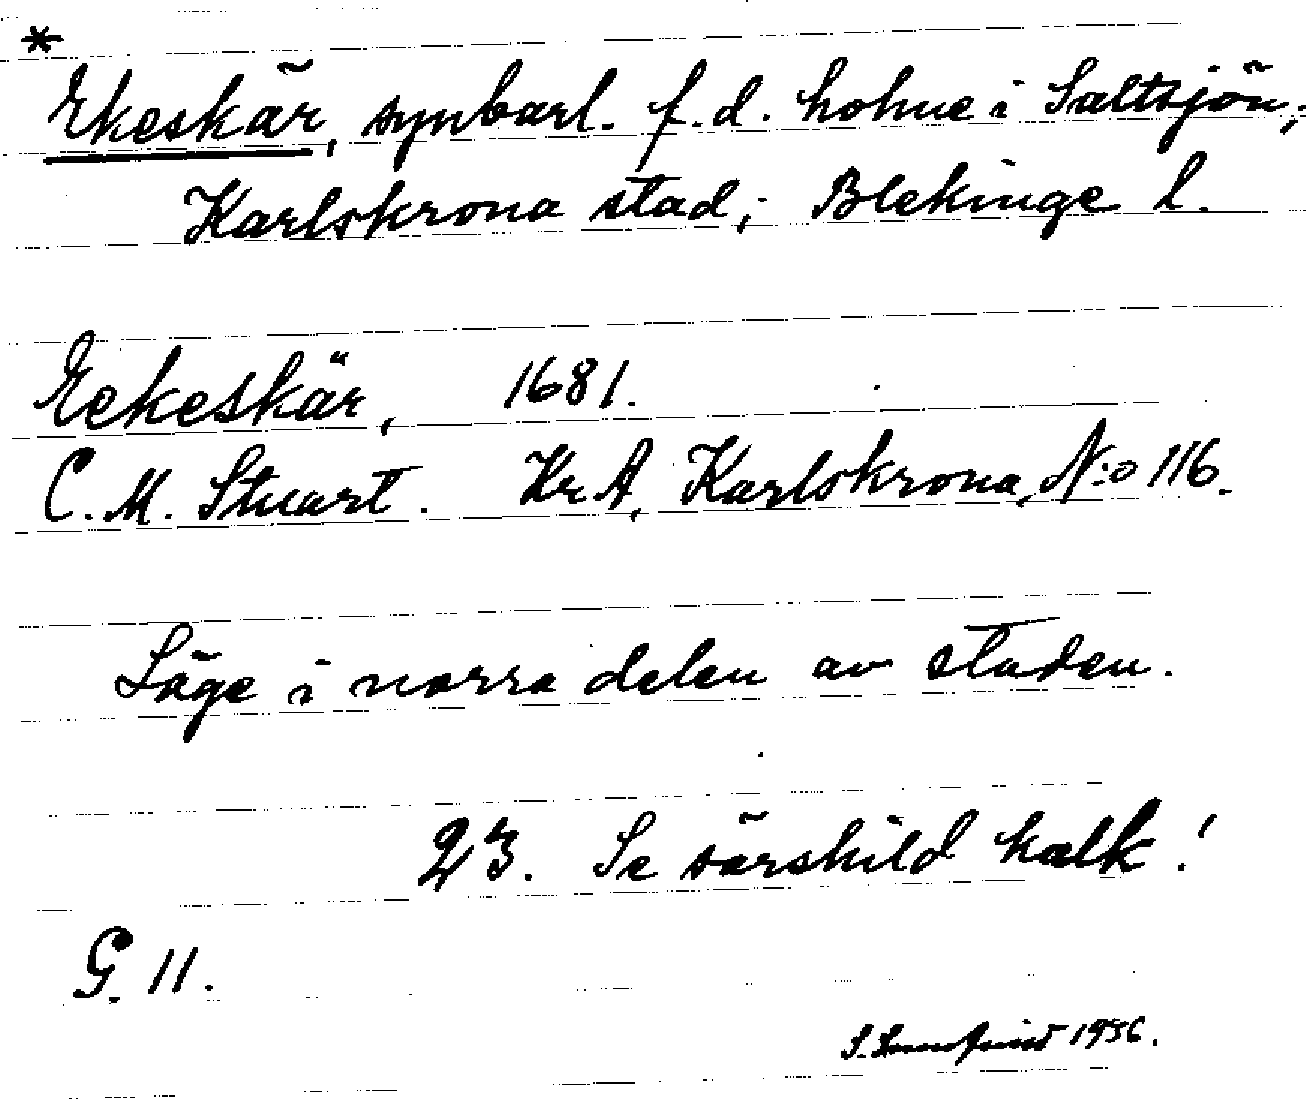 *
Ekeskär, synbarl. f.d. holme i Saltsjön;
Karlskrona stad; Blekinge l.
Eekeskär, 1681.
C. M. Stuart. Kr A, Karlskrona, N:o 116.
Läge i norra delen av staden.
23. Se särskild kalk!
G. 11.
1956.